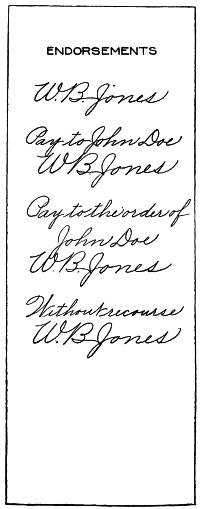 ENDORSEMENTS
W. B. Jones
Pay to John Doe
W B Jones
Pay to the order of
John Doe
W. B. Jones
Without recourse
W. B Jones